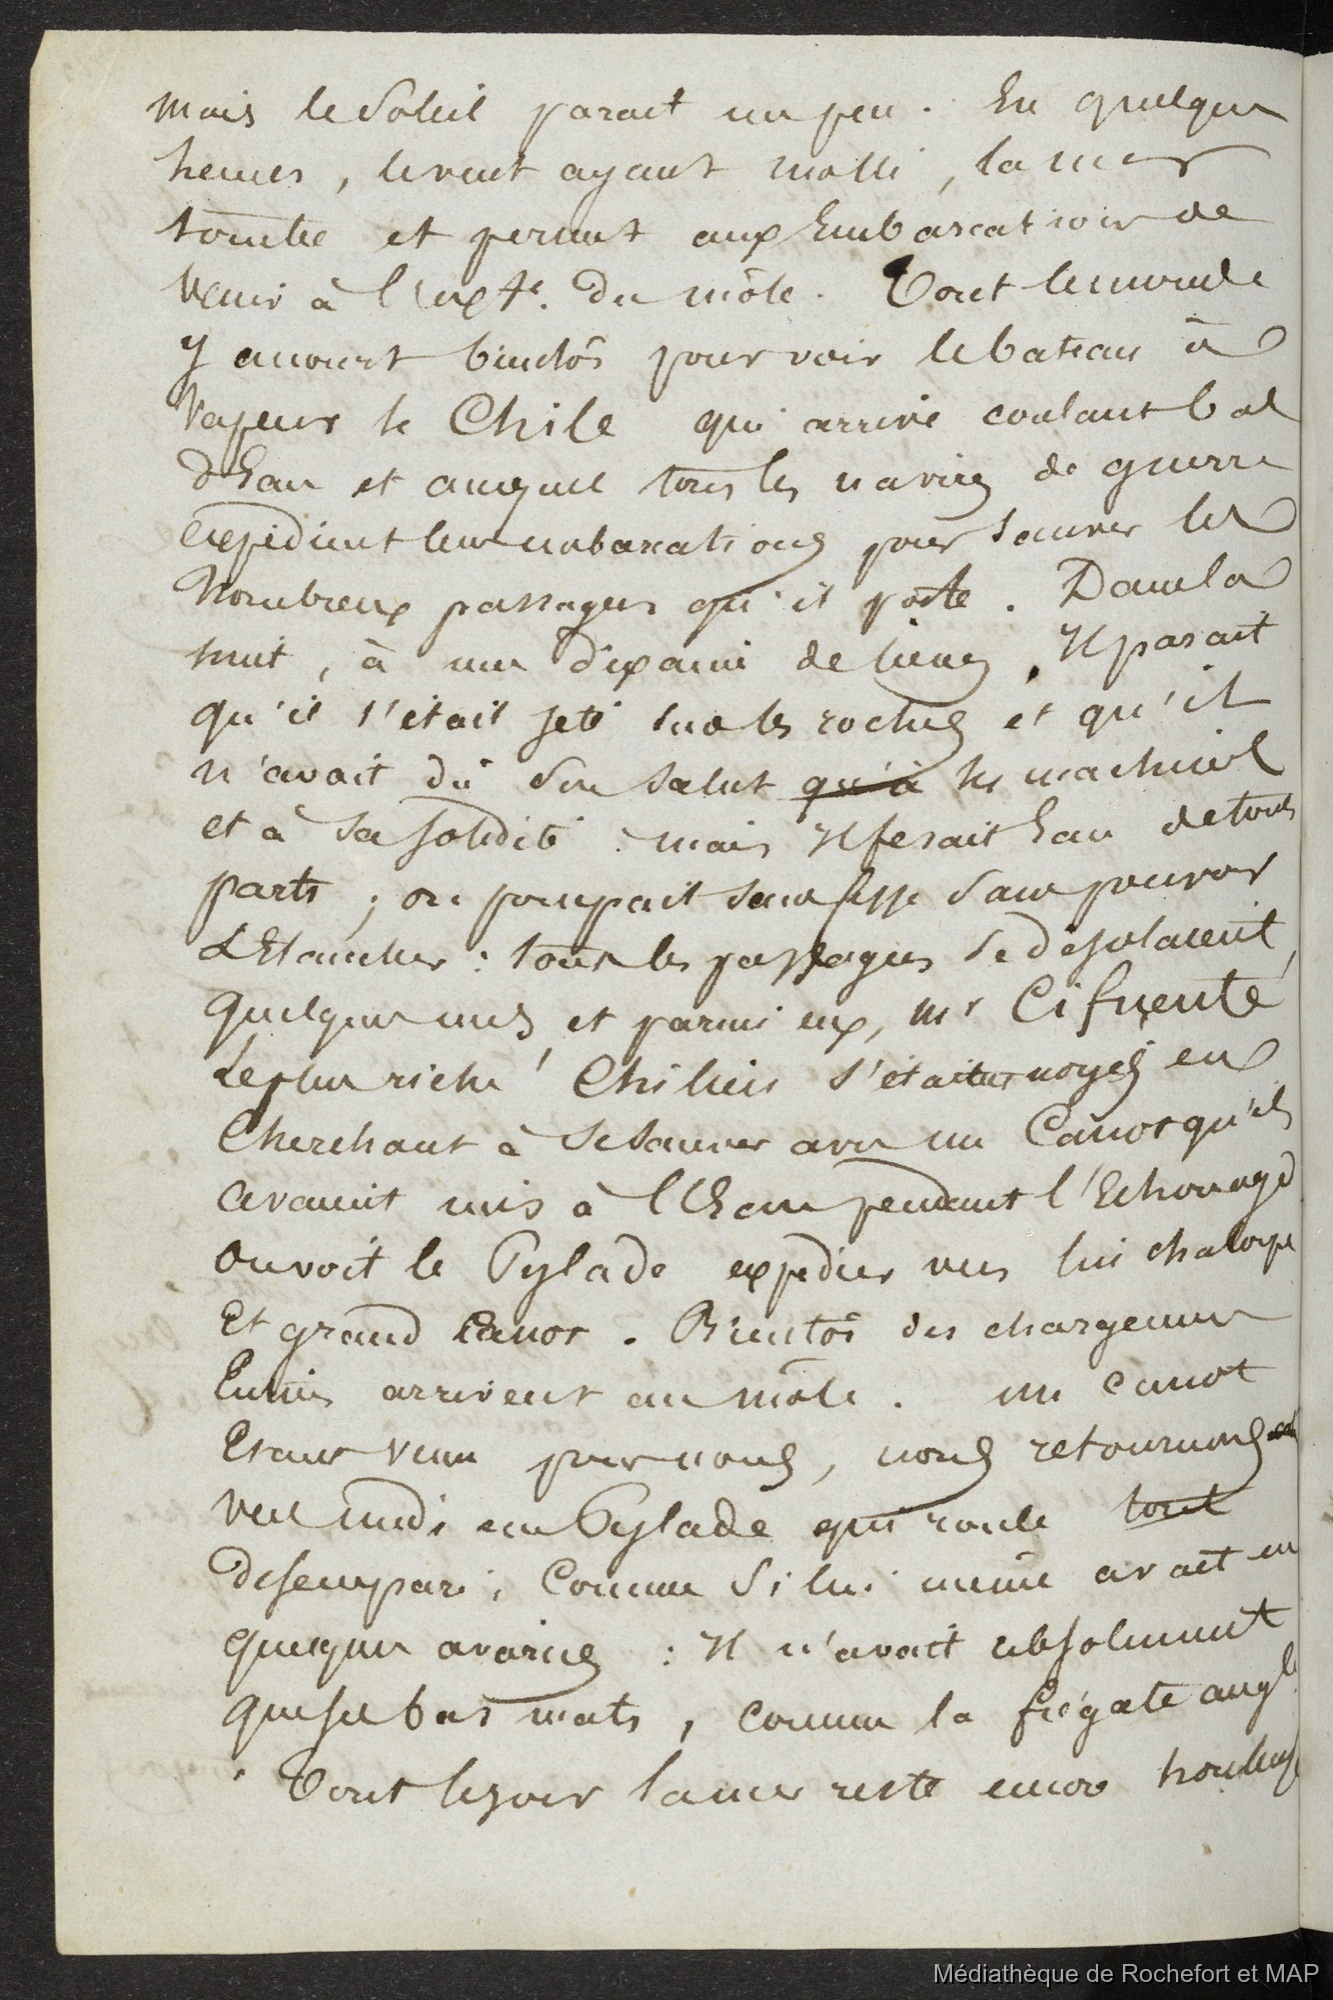 mais le Soleil parait un peu. En quelques
heures, le vent ayant molli, la mer
tombe et permet aux Embarcations de
venir à l'extr. du môle. Tout le monde
y accourt bientôt pour voir le bateau à
Vapeur le Chile qui arrive coulant bas
d'Eau et auquel tous les navires de guerre
expédient leurs embarcations pour sauver les
Nombreux passagers qu'il porte. Dans la
nuit, à une dixaine de lieues, Il parait
qu'il s'était jeté sur les roches et qu'il
n'avait dû son salut qu'à ses machines
et à sa solidité : mais Il fesait Eau de tous
parts ; on pompait sans cesse sans pouvoir
L'Etancher : tous les passagers se désolaient,
quelques uns, et parmi eux, Mr Cifuente
Le plus riche Chilien s'étaient noyés en
Cherchant à se sauver avec un Canot qu'ils
avaient mis à l'Eau pendant l'Echouage
on voit le Pylade expédier vers lui chaloupe
Et grand Canot. Bientôt des chargements
Entiers arrivent au môle. Un canot
Etant venu pour nous, nous retournons
vers midi au Pylade qui roule tout
désemparé, Comme si lui même avait eu
quelques avaries : Il n'avait absolument
que ses bas mats, comme la frégate angl.
Tout le jour la mer reste encore houleuse
Médiathèque de Rochefort et MAP